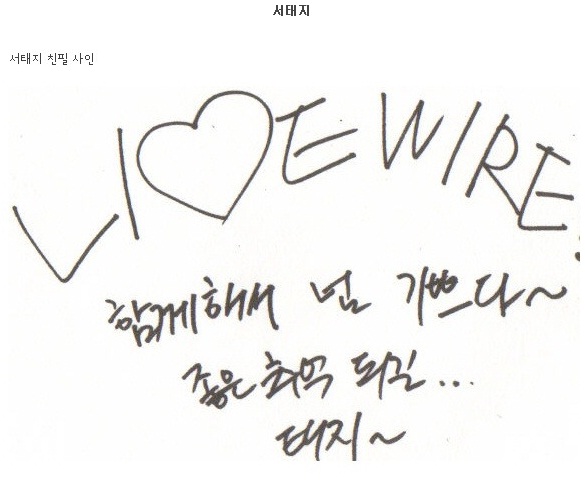 서태지
서태지 친필 사인
LI♡E WIRE.
함께해서 넘 기쁘다~
좋은 추억 되길...
태지~